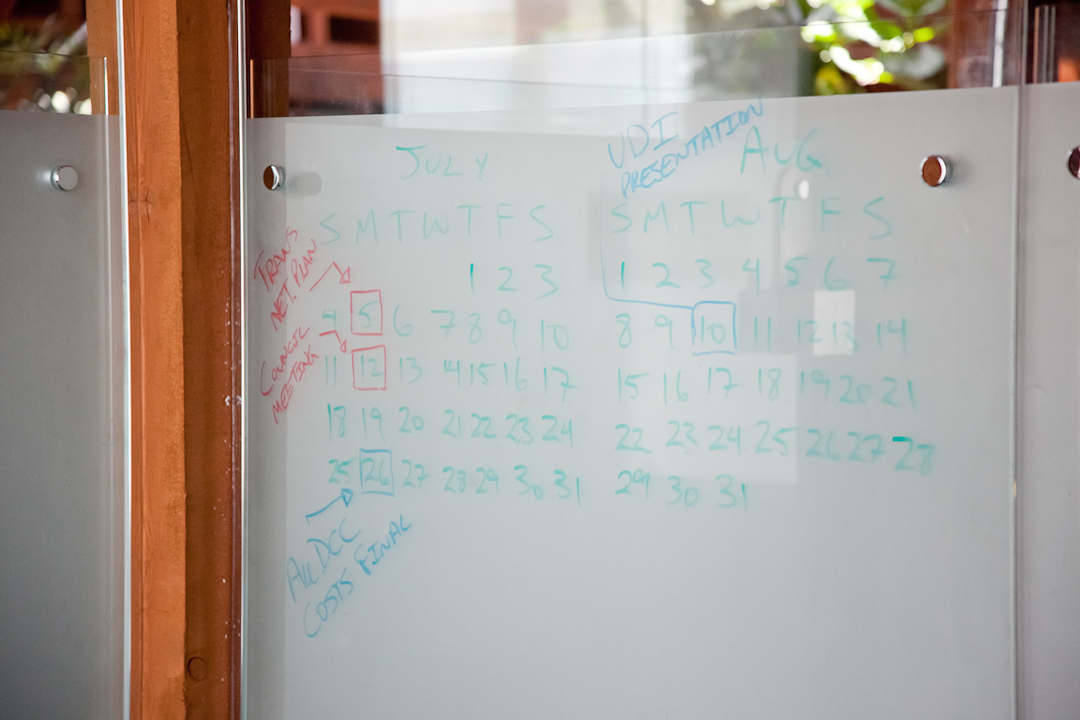 JULY
S M T W T F S
1 2 3
4 5 6 7 8 9 10
11 12 13 14 15 16 17
18 19 20 21 22 23 24
25 26 27 28 29 30 31
TRANS
NET. PLAN
COUNCIL
MEETING
ALL DCC
COSTS FINAL
UDI
PRESENTATION
AUG
S M T W T F S
1 2 3 4 5 6 7
8 9 10 11 12 13 14
15 16 17 18 19 20 21
22 23 24 25 26 27 28
29 30 31